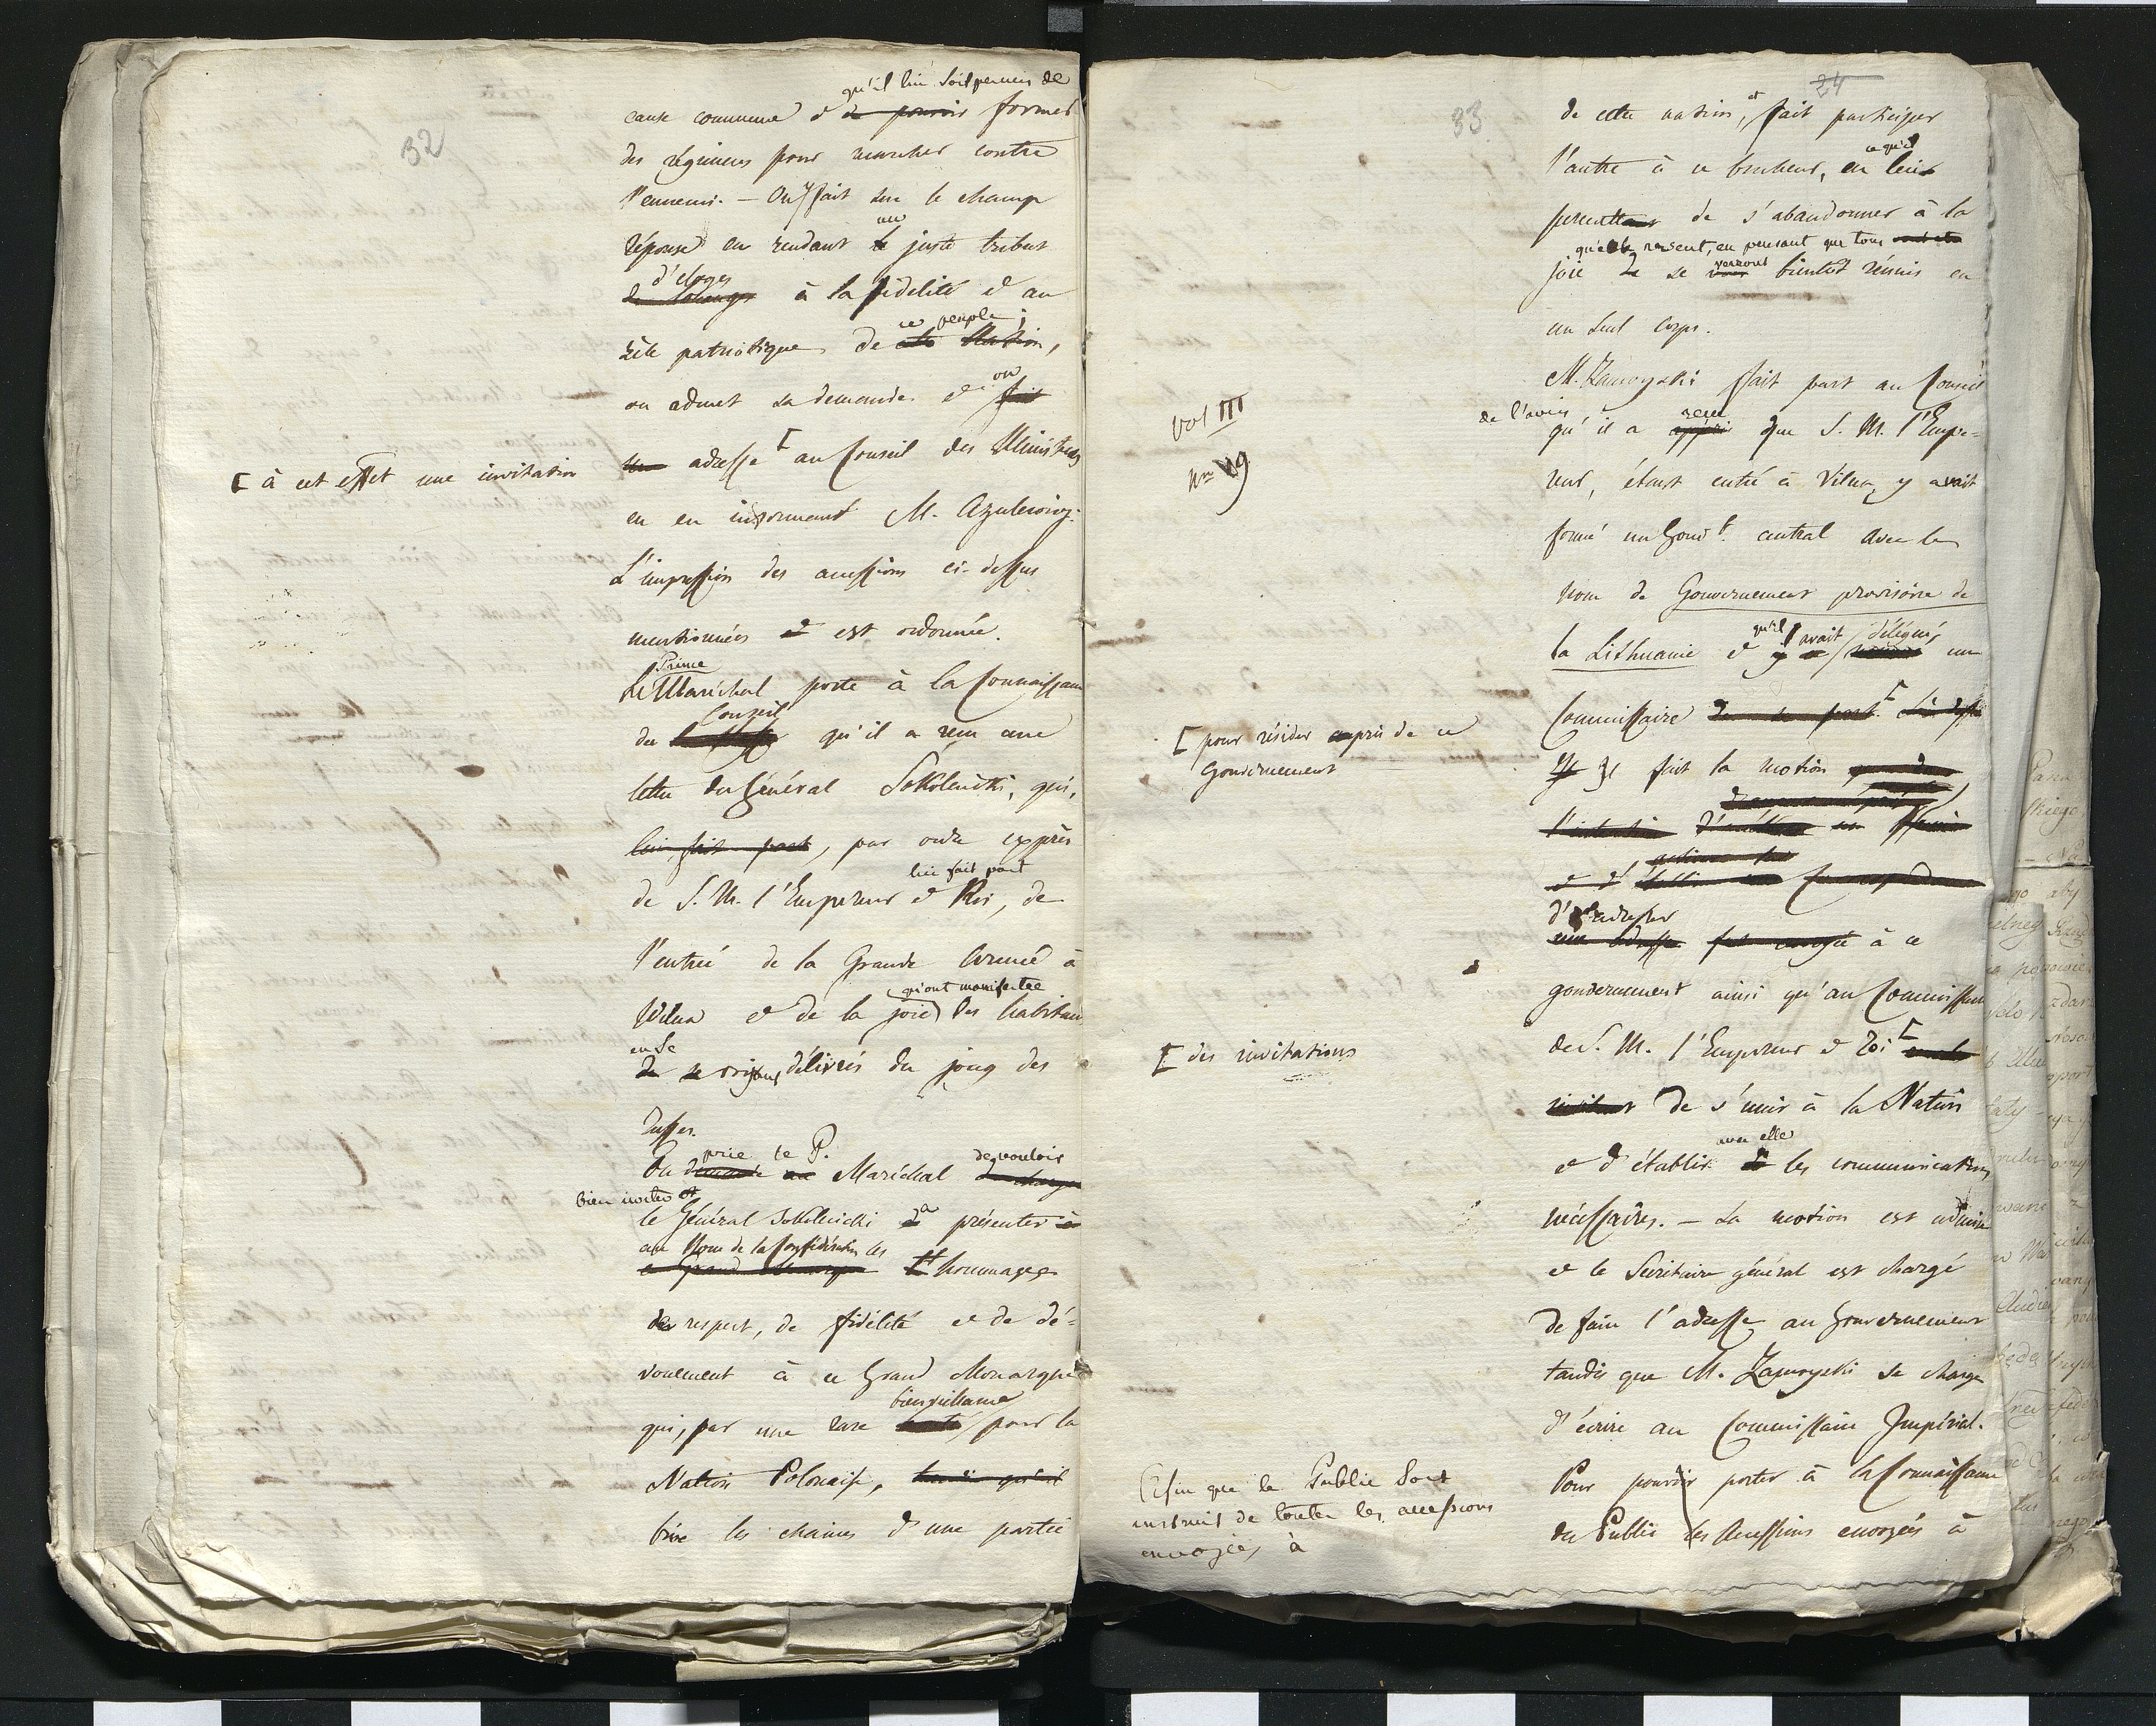 32
qu'il lui soit permis de
cause commune & de pouvoir former
des régimens pour marcher contre
l'ennemi. — On fait sur le champ
un
réponse en rendant le juste tribut
d'eloges
de louanges à la fidelité & au
ce peuple;
zèle patriotique de cette Nation,
on
on admet sa demande & fait
une adresse [ au Conseil des Ministres
[ à cet effet une invitation
en en informant M.
L'impression des accessions ci-dessus
mentionnées & est ordonnée.
Prince
Le Maréchal porte à la Connaissance
Conseil
du qu'il a reçu une
lettre du Général Sokolnicki, qui,
lui fait part, par ordre exprès
lui fait part
de S. M. l'Empereur & Roi, de
l'entrée de la Grande Armée à
qu'ont manifestée
Wilna & de la joie des habitans
en se
de se voyant délivrés du joug des
Russes.
prie le P. de vouloir
On demande au Maréchal de charger
bien inviter
le Général Sokolnicki à présenter à
au Nom de la Confédération les
ce Grand Monarque hommages
de respect, de fidélité & de dé-
vouement à ce Grand Monarque
bienveillance
qui, par une rare bonté, pour la
Nation Polonaise, tandis qu'il
brise les chaines d'une partie
24
33
de cette nation, et fait participer
ce qu'il
l'autre à ce bonheur, en leur
permettant de s'abandonner à la
qu'elle ressent, en pensant que tous
verront
joie de se voir bientôt réunis en
un seul corps.
M. Zamoyski fait part au Conseil
de l'avis, reçu
qu'il a appris que S. M. l'Empe-
Vol III
Nro 49
reur, étant entré à Vilna, y avait
formé un Gouvt. central avec le
nom de Gouvernement provisoire de
qu'il avait délégué
la Lithuanie & y a nommé un
Commissaire de sa part. [
[ pour résider auprès de ce
Gouvernement
Il fait la motion
d'adresser
une adresse fut envoyée à ce
gouvernement ainsi qu'au Commissaire
de S. M. l'Empereur & Roi [
[ des invitations
invitant de s'unir à la Nation
avec elle
& d'établir les communications
nécessaires. — La motion est admise
& le Secrétaire général est chargé
de faire l'adresse au Gouvernement
tandis que M. Zamoyski se charge
d'écrire au Commissaire Impérial.
Pour pouvoir porter à la Connaissance
du Public les Accessions envoyées à
Afin que le Public soit
instruit de toutes les accessions
envoyées à